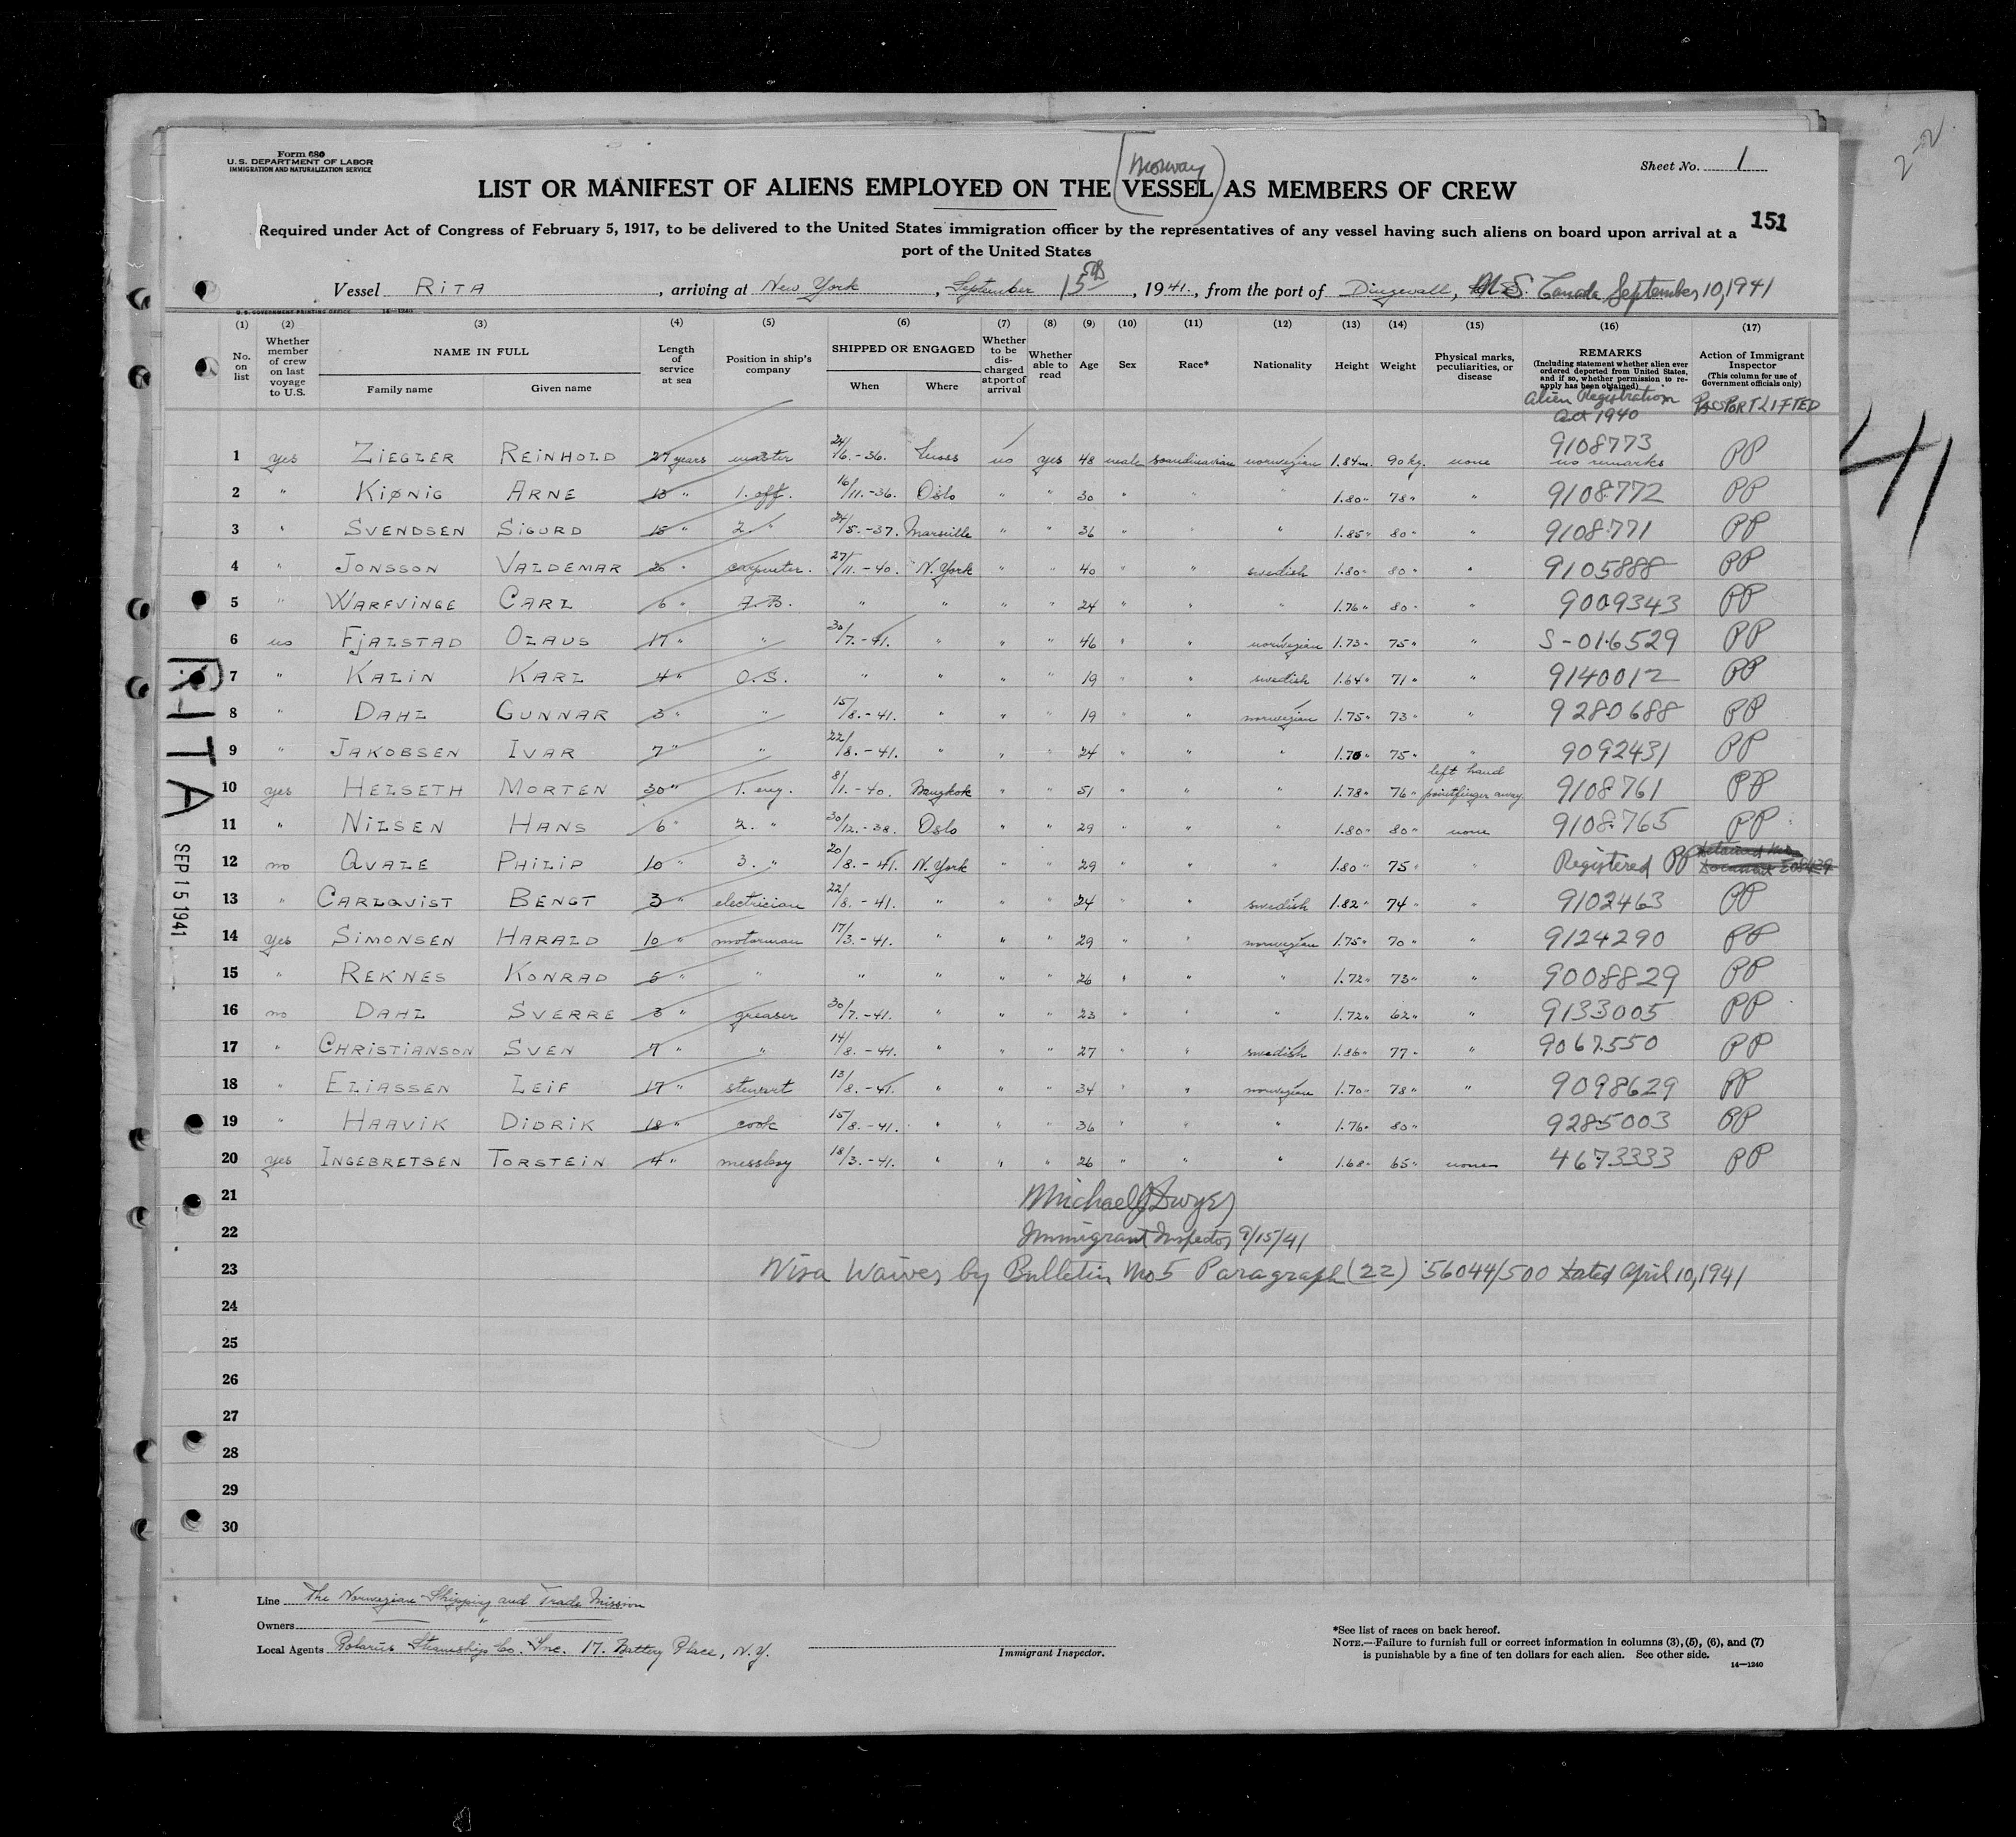 2-2
Form 680
U. S. DEPARTMENT OF LABOR
IMMIGRATION AND NATURALIZATION SERVICE
Norway
Sheet No. 1
LIST OR MANIFEST OF ALIENS EMPLOYED ON THE VESSEL AS MEMBERS OF CREW
151
Required under Act of Congress of February 5, 1917, to be delivered to the United States immigration officer by the representatives of any vessel having such aliens on board upon arrival at a
port of the United States
Vessel RITA, arriving at New York, September 15th, 1941., from the port of Dingwall, N.S. Canada September 10, 1941
U. S. GOVERNMENT PRINTING OFFICE 14—1240
(1) (2) (3) (4) (5) (6) (7) (8) (9) (10) (11) (12) (13) (14) (15) (16) (17)
No. on list
Whether member of crew on last voyage to U.S.
NAME IN FULL
Family name
Given name
Length of service at sea
Position in ship's company
SHIPPED OR ENGAGED
When
Where
Whether to be discharged at port of arrival
Whether able to read
Age
Sex
Race*
Nationality
Height
Weight
Physical marks, peculiarities, or disease
REMARKS
(Including statement whether alien ever ordered deported from United States, and if so, whether permission to reapply has been obtained)
Alien Registration
Act 1940
Action of Immigrant Inspector
(This column for use of Government officials only)
PASSPORT LIFTED
1 yes ZIEGLER REINHOLD 27 years master 24/6.-36. no yes 48 male scandinavian norwegian 1.84m. 90 kg. none 9108773 no remarks PP
2 " KIØNIG ARNE 13 " 1. off. 16/11.-36. Oslo " " 30 " " " 1.80 " 78 " " 9108772 PP
3 " SVENDSEN SIGURD 15 " 2. " 24/5.-37. Marseille " " 36 " " " 1.85 " 80 " " 9108771 PP
4 " JONSSON VALDEMAR 20 " carpenter. 27/11.-40. N.York " " 40 " " swedish 1.80 " 80 " " 9105888 PP
5 " WARFVINGE CARL 6 " A.B. " " " " 24 " " " 1.76 " 80 " " 9009343 PP
6 no FJALSTAD OLAUS 17 " " 30/7.-41. " " " 46 " " norwegian 1.73 " 75 " " S-016529 PP
7 " KALIN KARL 4 " O.S. " " " " 19 " " swedish 1.64 " 71 " " 9140012 PP
8 " DAHL GUNNAR 3 " " 15/8.-41. " " " 19 " " norwegian 1.75 " 73 " " 9280688 PP
9 " JAKOBSEN IVAR 7 " " 22/8.-41. " " " 24 " " " 1.70 " 75 " " 9092431 PP
10 yes HELSETH MORTEN 30 " 1. eng. 8/1.-40. Bangkok " " 51 " " " 1.78 " 76 " left hand pointfinger away 9108761 PP
11 " NILSEN HANS 6 " 2. " 30/12.-38. Oslo " " 29 " " " 1.80 " 80 " none 9108765 PP
12 no QVALE PHILIP 10 " 3. " 20/8.-41. N.York " " 29 " " " 1.80 " 75 " " Registered PP
13 " CARLQVIST BENGT 3 " electrician 22/8.-41. " " " 24 " " swedish 1.82 " 74 " " 9102463 PP
14 yes SIMONSEN HARALD 10 " motorman 17/3.-41. " " " 29 " " norwegian 1.75 " 70 " " 9124290 PP
15 " REKNES KONRAD 5 " " " " " " 26 " " " 1.72 " 73 " " 9008829 PP
16 no DAHL SVERRE 3 " greaser 30/7.-41. " " " 23 " " " 1.72 " 62 " " 9133005 PP
17 " CHRISTIANSON SVEN 7 " " 14/8.-41. " " " 27 " " swedish 1.86 " 77 " " 9067550 PP
18 " ELIASSEN LEIF 17 " stewart 13/8.-41. " " " 34 " " norwegian 1.70 " 78 " " 9098629 PP
19 " HAAVIK DIDRIK 18 " cook 15/8.-41. " " " 36 " " " 1.76 " 80 " 9285003 PP
20 yes INGEBRETSEN TORSTEIN 4 " messboy 18/3.-41. " " " 26 " " " 1.68 " 65 " none 4673333 PP
21 Michael J Dwyer
22 Immigrant Inspector 9/15/41
23 Visa Waives by Bulletin No 5 Paragraph (22) 56044/500 dated April 10, 1941
24
25
26
27
28
29
30
RITA
SEP 15 1941
41
Line The Norwegian Shipping and Trade Mission
Owners "
Local Agents Polarus Steamship Co. Inc. 17. Battery Place, N.Y.
Immigrant Inspector.
*See list of races on back hereof.
NOTE.—Failure to furnish full or correct information in columns (3), (5), (6), and (7)
is punishable by a fine of ten dollars for each alien. See other side.
14—1240